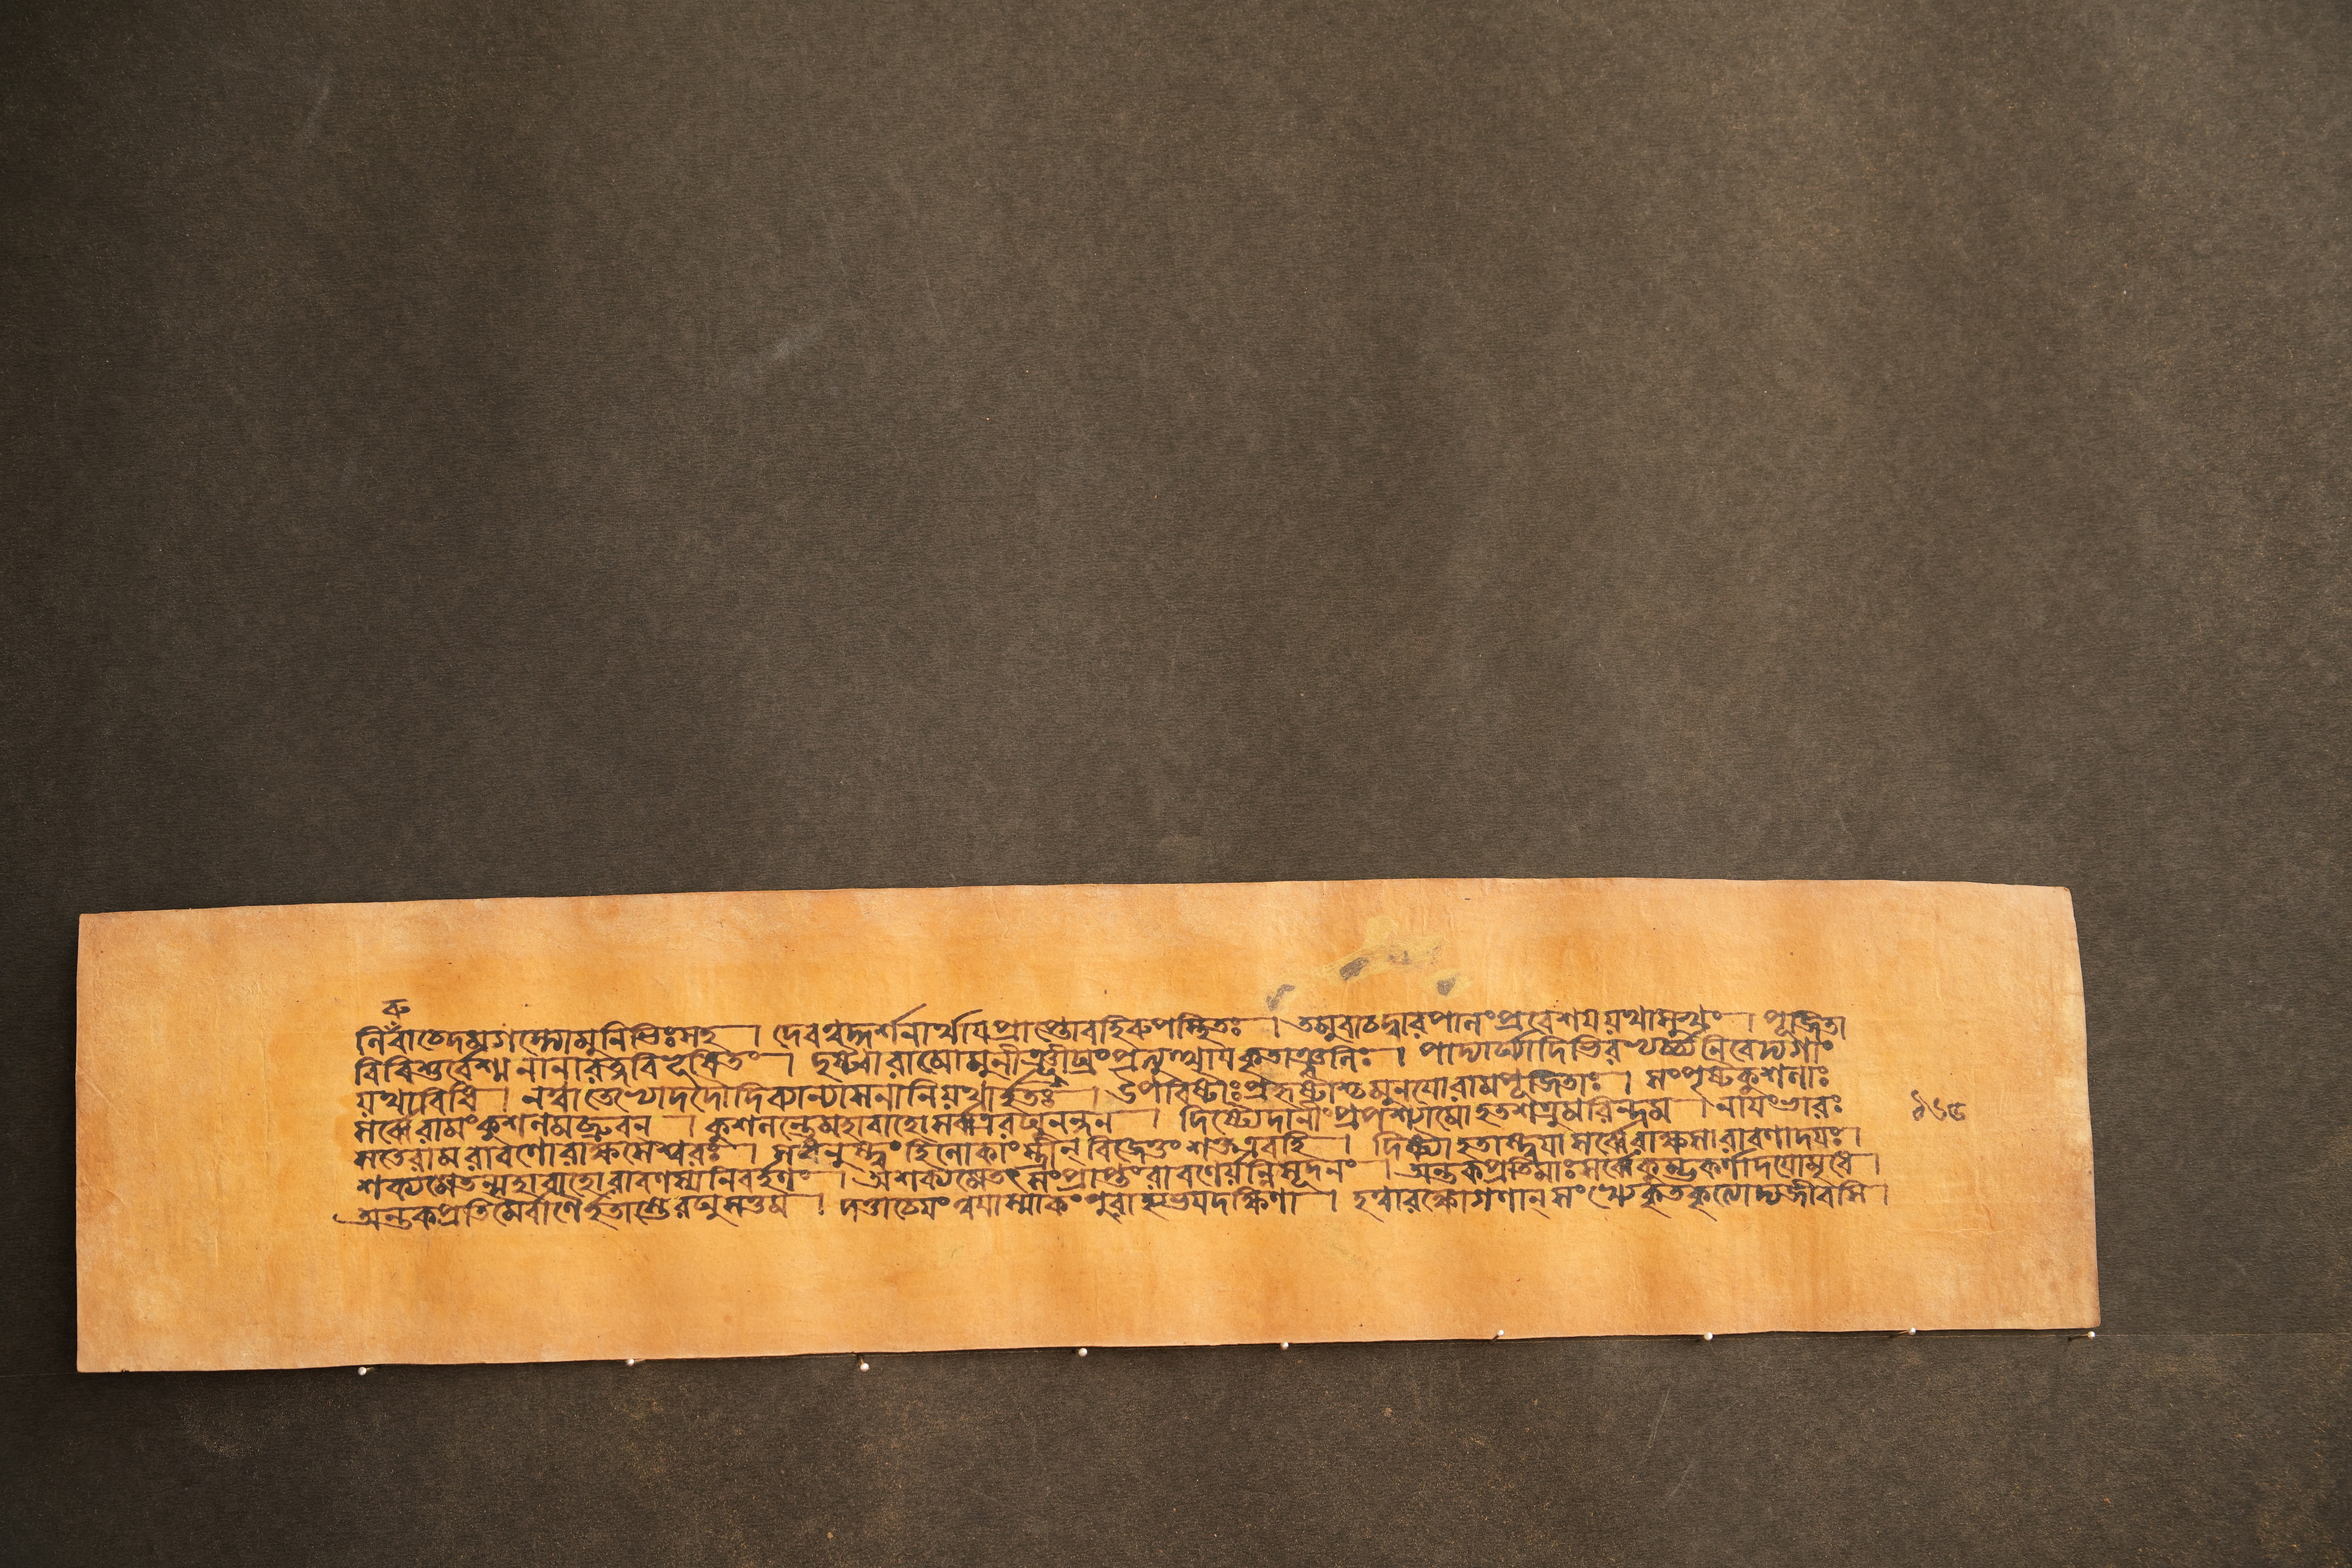 রু
নিবাচেদমগস্ত্যোমুনিভিঃসহ । দেবত্বদ্দর্শনার্থায়প্রাপ্তোবহিরুপস্থিতঃ । তমুবাচদ্বারপালংপ্রবেশয়যথাসুখং । পূজিতা
বিবিশুর্বেশ্মনানারত্নবিভূষিতং । দৃষ্ট্বারামোমুনীঞ্ছীঘ্রংপ্রত্যুত্থায়কৃতাঞ্জলিঃ । পাদ্যার্ঘ্যাদিভিরভ্যর্চ্চ্যনিবেদ্যগাং
যথাবিধি । নত্বাতেভ্যোদদৌদিব্যান্যাসনানিযথার্হতঃ । উপবিষ্টাঃপ্রহৃষ্টাশ্চমুনয়োরামপূজিতাঃ । সংপৃষ্টকুশলাঃ
সর্ব্বেরামংকুশলমব্রুবন । কুশলন্তেমহাবাহোসর্ব্বত্ররঘুনন্দন । দিষ্ট্যেদানীংপ্রপশ্যামোহতশত্রুমরিন্দম । নায়ংভারঃ
সতেরামরাবণোরাক্ষসেশ্বরঃ । সধনুস্ত্বংহিলোকাংস্ত্রীনবিজেতুংশক্তএবহি । দিষ্ট্যাহতাস্ত্বয়াসর্ব্বেরাক্ষসারাবণাদয়ঃ।
শক্যমেতন্মহাবাহোরাবণস্যনিবর্হণং । অশক্যমেতৎসংপ্রাপ্তংরাবণের্যন্নিসূদনং । অন্তকপ্রতিমাঃসর্ব্বেকুম্ভকর্ণাদয়োমৃধে।
অন্তকপ্রতিমৈর্বাণৈর্হতাস্তেরঘুসত্তম । দত্তাচেয়ংত্বয়াস্মাকংপুরাহ্যভয়দক্ষিণা । হত্বারক্ষোগণান্সংখ্যেকৃতকৃত্যোদ্যজীবসি ।